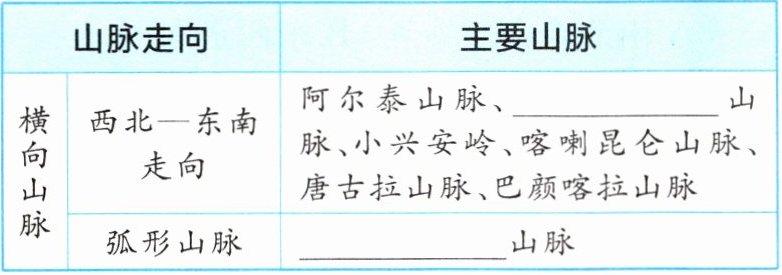 山脉走向 主要山脉
横向山脉
西北—东南
走向
阿尔泰山脉、____________山
脉、小兴安岭、喀喇昆仑山脉、
唐古拉山脉、巴颜喀拉山脉
弧形山脉 ____________山脉